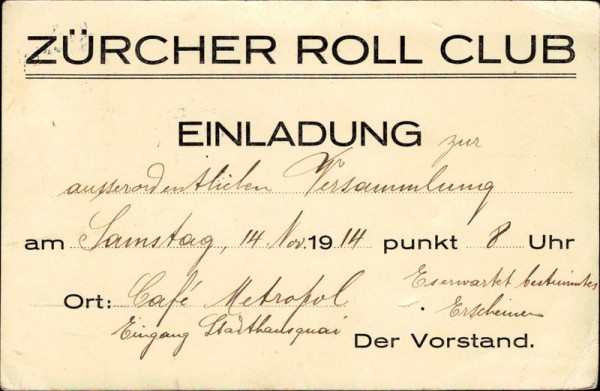 ZÜRCHER ROLL CLUB
EINLADUNG zur
ausserordentlichen Versammlung
am Samstag, 14. Nov. 1914 punkt 8 Uhr
Ort: Café Metropol
Eingang Stadthausquai
Es erwartet bestimmtes
Erscheinen
Der Vorstand.